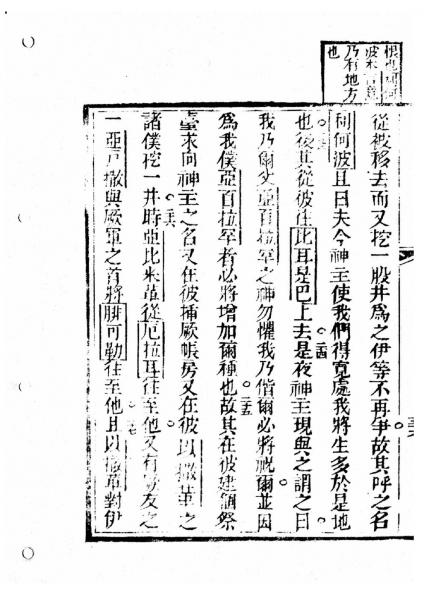 也利何
乃有地方
也
從彼移去而又挖一股井為之伊等不再爭故其呼之名
利何波且曰夫今神主使我們得寬處我將生多於是地
也後其從彼往比耳是巴上去是夜神主現與之謂之曰
二四
我乃爾父亞百拉罕之神勿懼我乃偕爾必將祝爾並因
為我僕亞百拉罕者必將增加爾種也故其在彼建個祭
二五
臺求向神主之名又在彼捕厥帳房又在彼以撒革之
諸僕挖一井時亞比米革從厄拉耳往至他又有厥友之
二六
一亞戶撒與厥軍之首將腓可勒往至他且以撒革對伊
二七